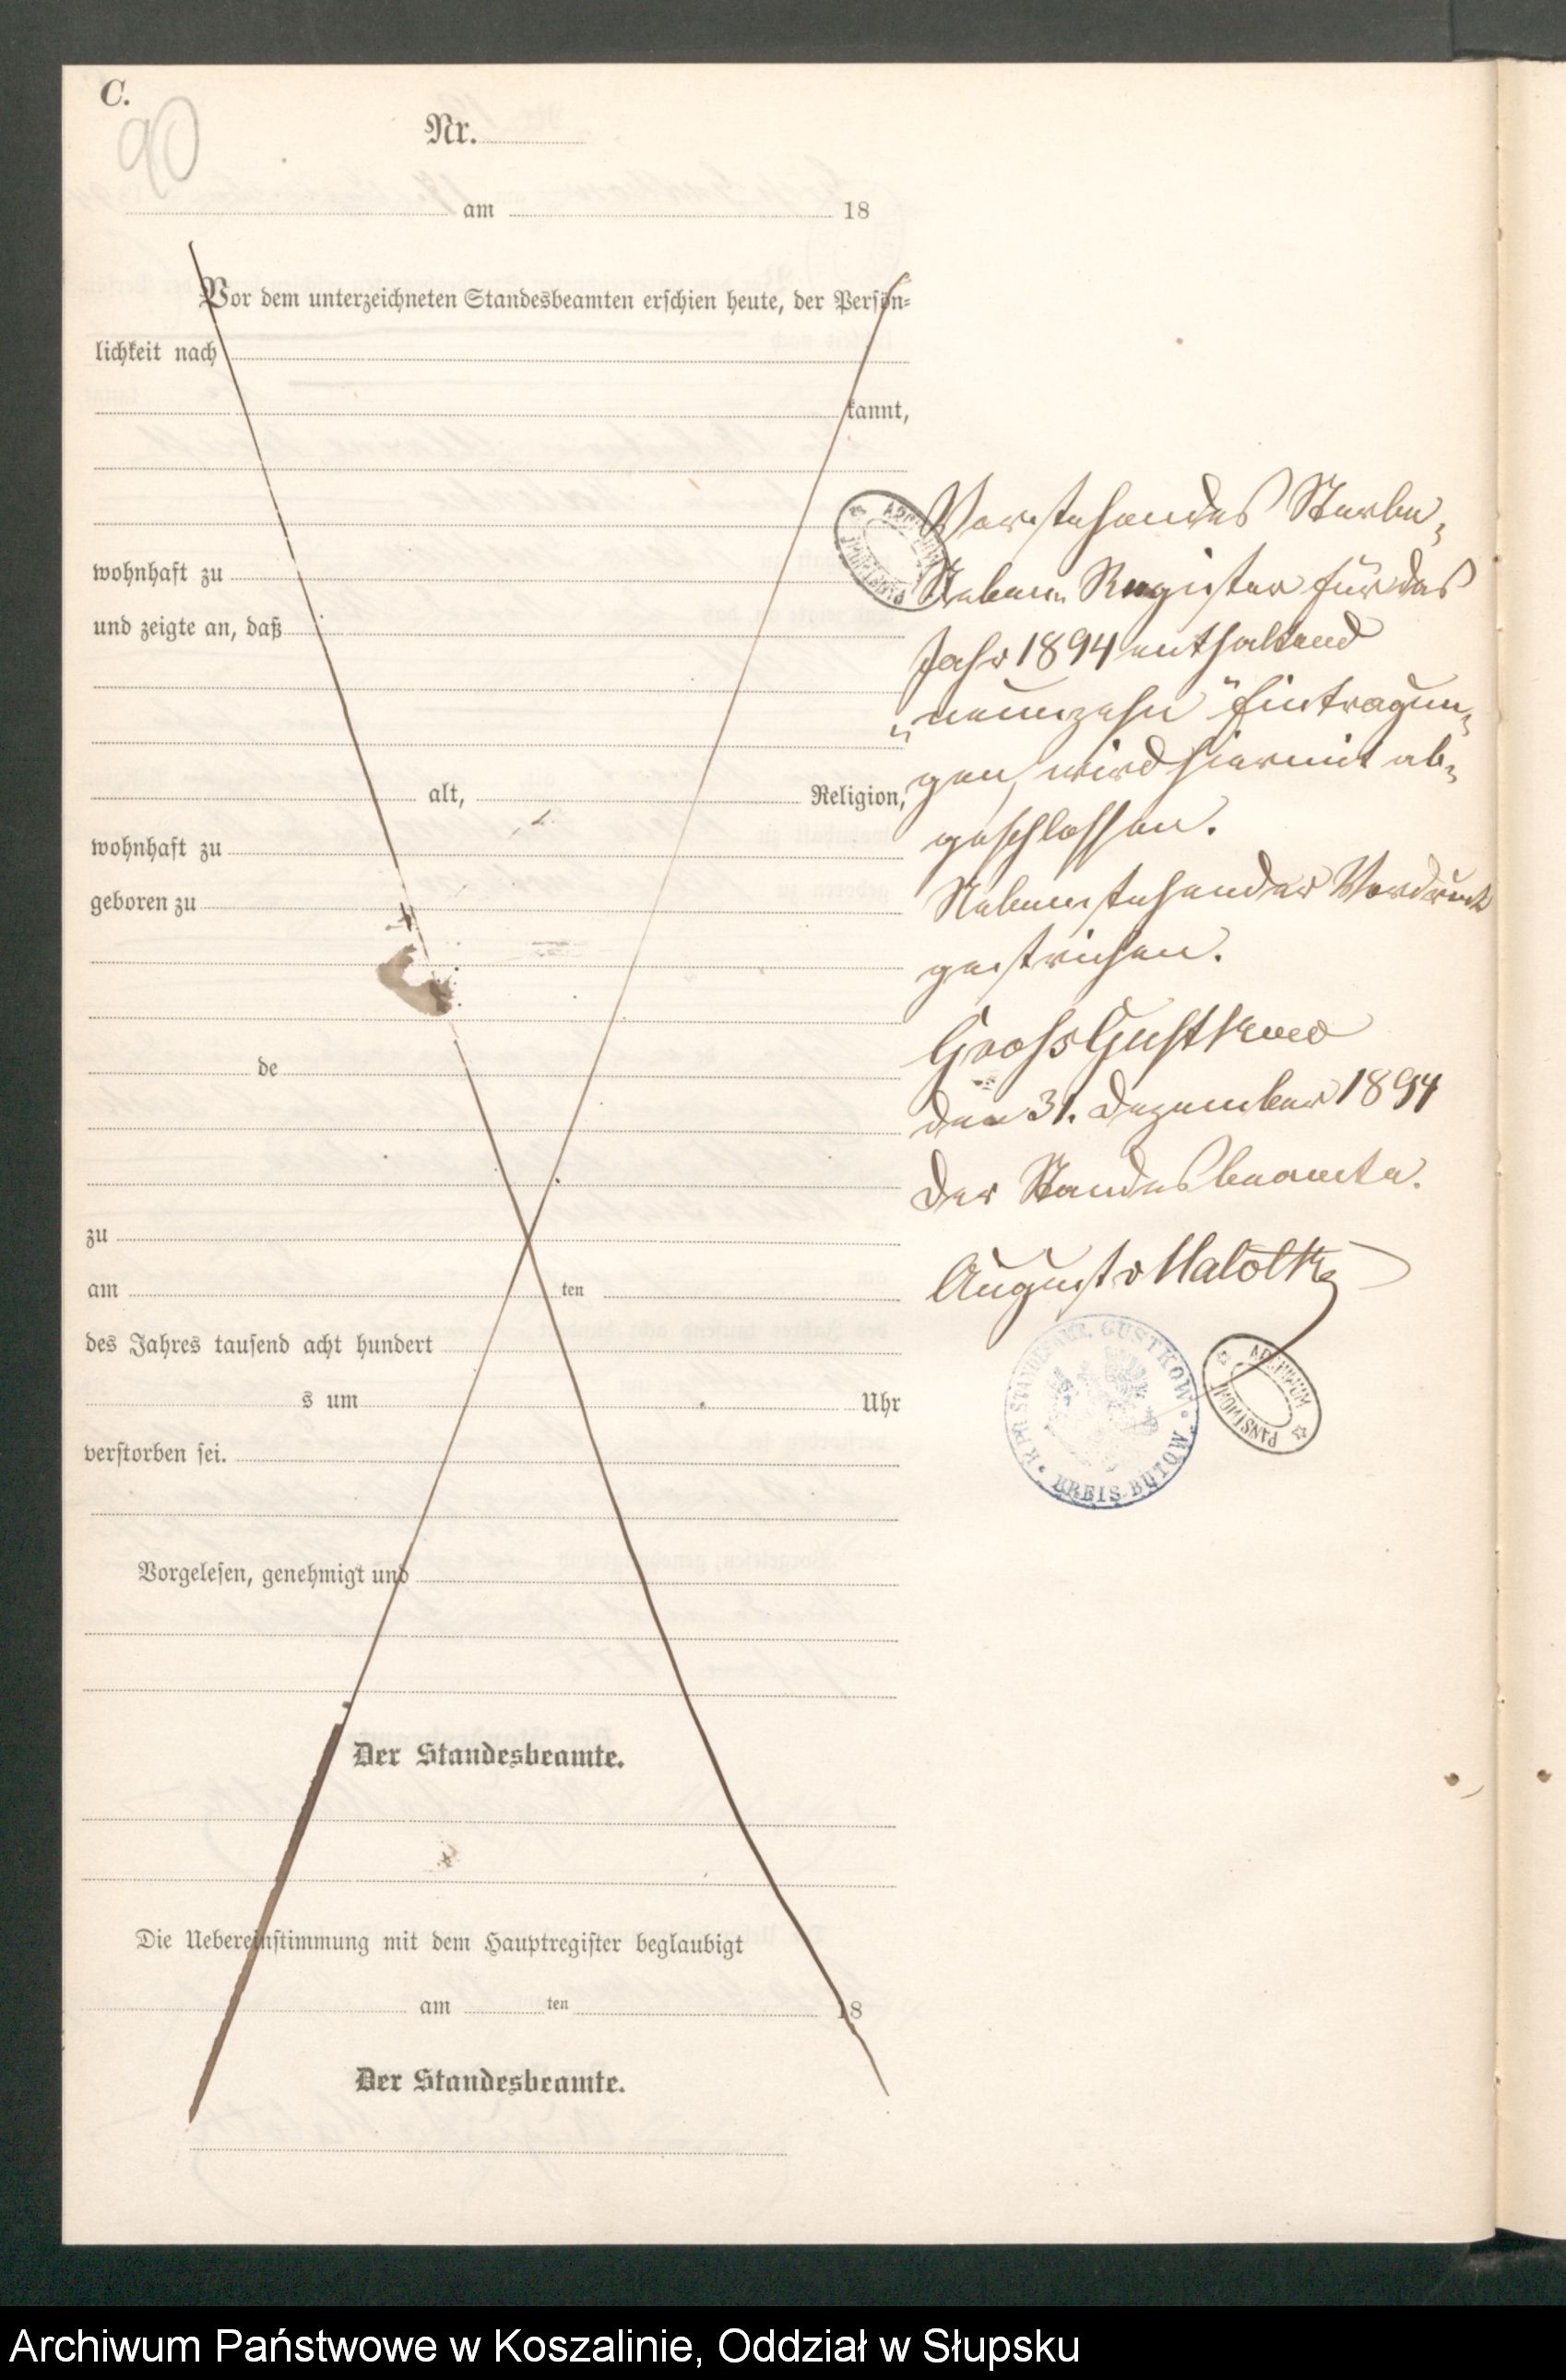 C.
90
Nr.
am 18
Vor dem unterzeichneten Standesbeamten erschien heute, der Persön-
lichkeit nach
kannt,
wohnhaft zu
und zeigte an, daß
alt, Religion,
wohnhaft zu
geboren zu
de
zu
am ten
des Jahres tausend acht hundert
s um Uhr
verstorben sei.
Vorgelesen, genehmigt und
Der Standesbeamte.
Die Uebereinstimmung mit dem Hauptregister beglaubigt
am ten 18
Der Standesbeamte.
Vorstehendes Sterbe-
Neben-Register für das
Jahr 1894 enthaltend
„neunzehn" Eintragun-
gen, wird hiermit ab-
geschlossen.
Nebenstehender Vordruck
gestrichen.
Gross Gustkow
den 31. Dezember 1894
Der Standesbeamte.
August v Malottki
GUSTKOW • KREIS BÜTOW •
ARCHIWUM PAŃSTWOWE
ARCHIWUM PAŃSTWOWE
Archiwum Państwowe w Koszalinie, Oddział w Słupsku